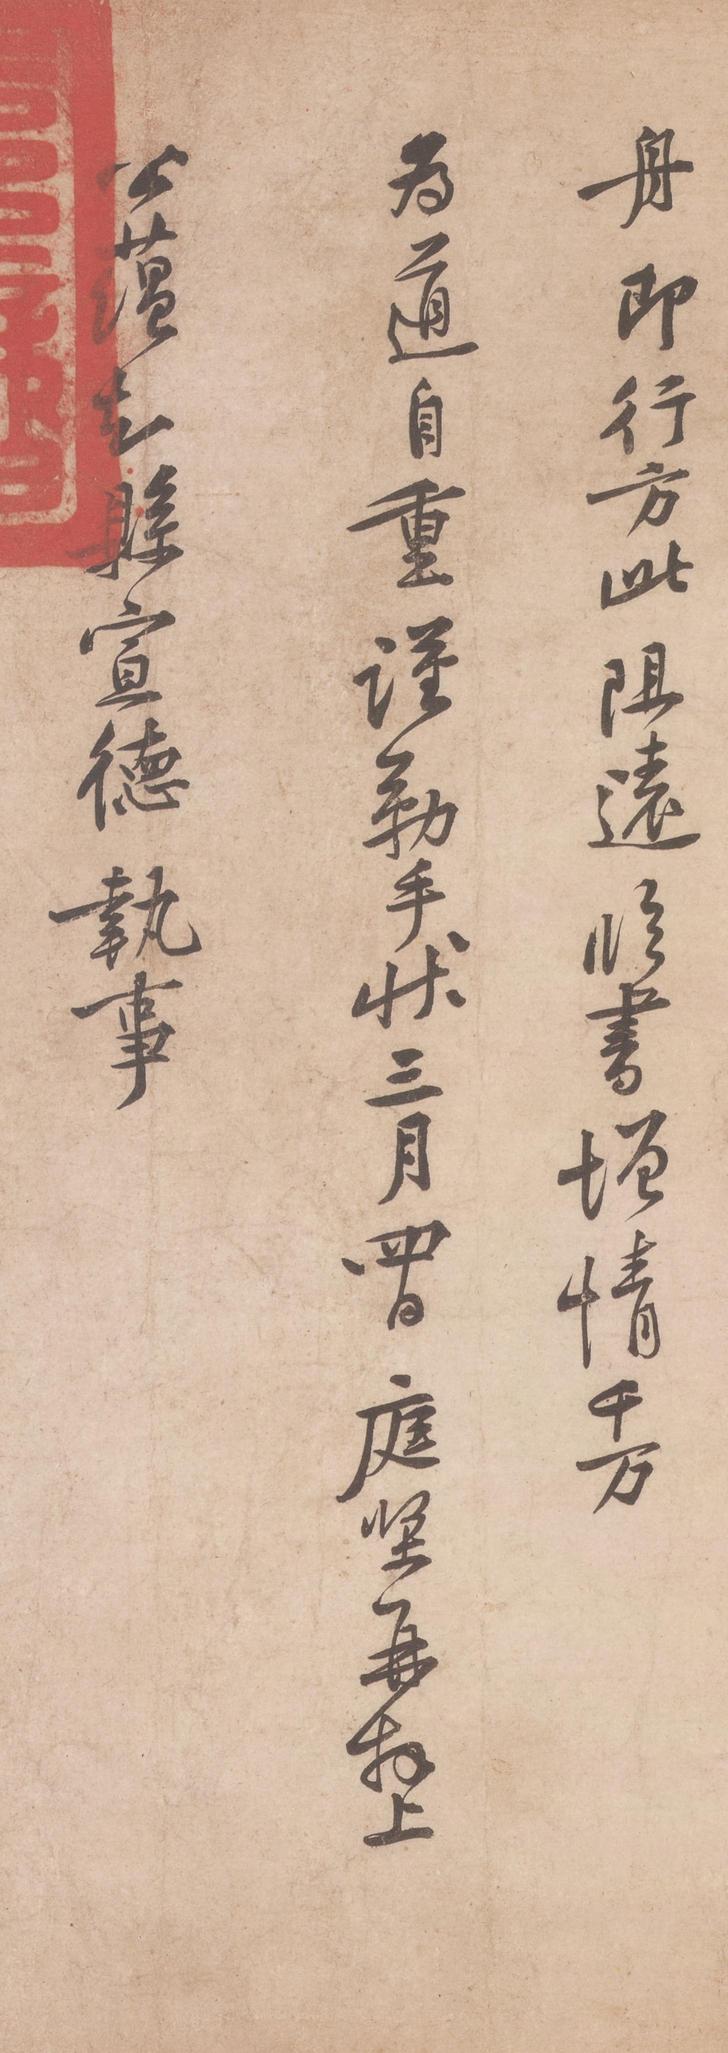 舟即行方此阻遠臨書增情千万
為道自重謹勒手狀三月四日庭堅再拜上
公蘊知縣宣德執事